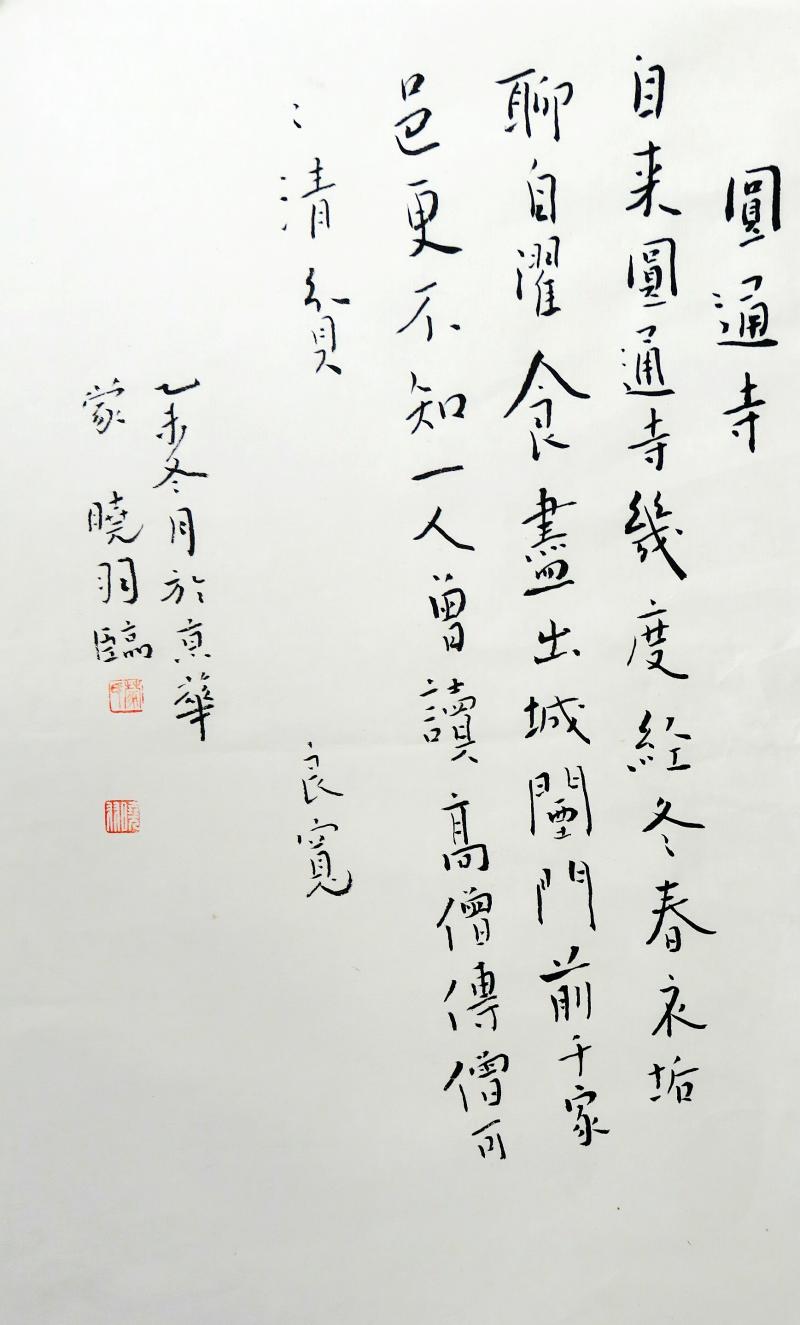 圓通寺
自来圓通寺幾度経冬春衣垢
聊自濯食盡出城闉門前千家
邑更不知一人曾讀高僧傳僧可
〻清貧 良寬
乙未冬月於京華
蒙 曉羽臨